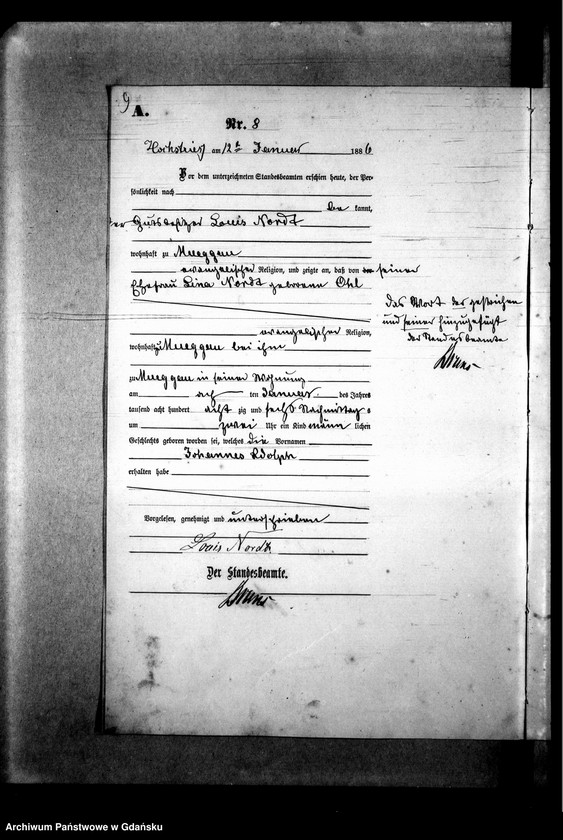 9
A.
Nr. 8
am 12t Januar 1886
Vor dem unterzeichneten Standesbeamten erschien heute, der Per-
sönlichkeit nach
be kannt,
der Gutsbesitzer Louis Nordt
wohnhaft zu Mueggau
evangelischer Religion, und zeigte an, daß von der seiner
Ehefrau Lina Nordt geborene Ohl
evangelischer Religion,
wohnhaft zu Mueggau bei ihm
zu Mueggau in seiner Wohnung
am ach ten Januar des Jahres
tausend acht hundert acht zig und sechs Nachmittag s
um zwei Uhr ein Kind männ lichen
Geschlechts geboren worden sei, welches die Vornamen
Johannes Adolph
erhalten habe
Vorgelesen, genehmigt und unterschrieben
Louis Nordt
Der Standesbeamte.
das Wort der gestrichen
und seiner hinzugefügt
der Standesbeamte
Archiwum Państwowe w Gdańsku